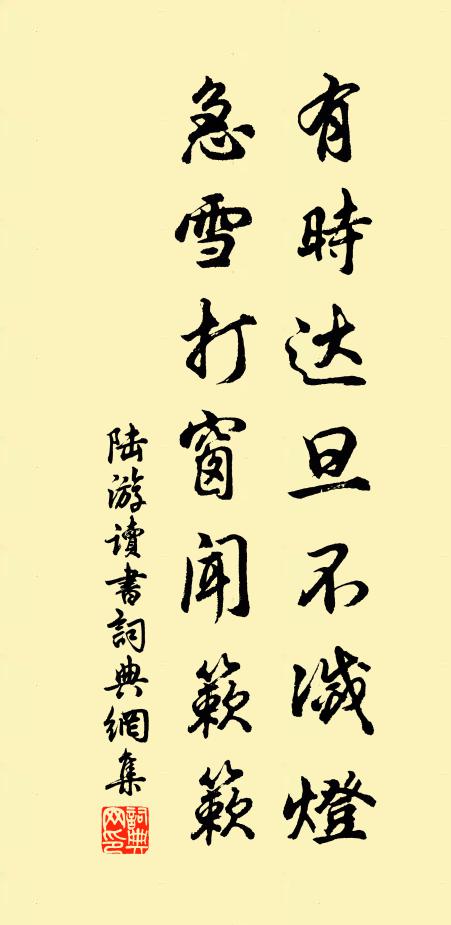 有時达旦不滅燈
急雪打窗聞簌簌
陆游讀書詞典網集
詞典网印